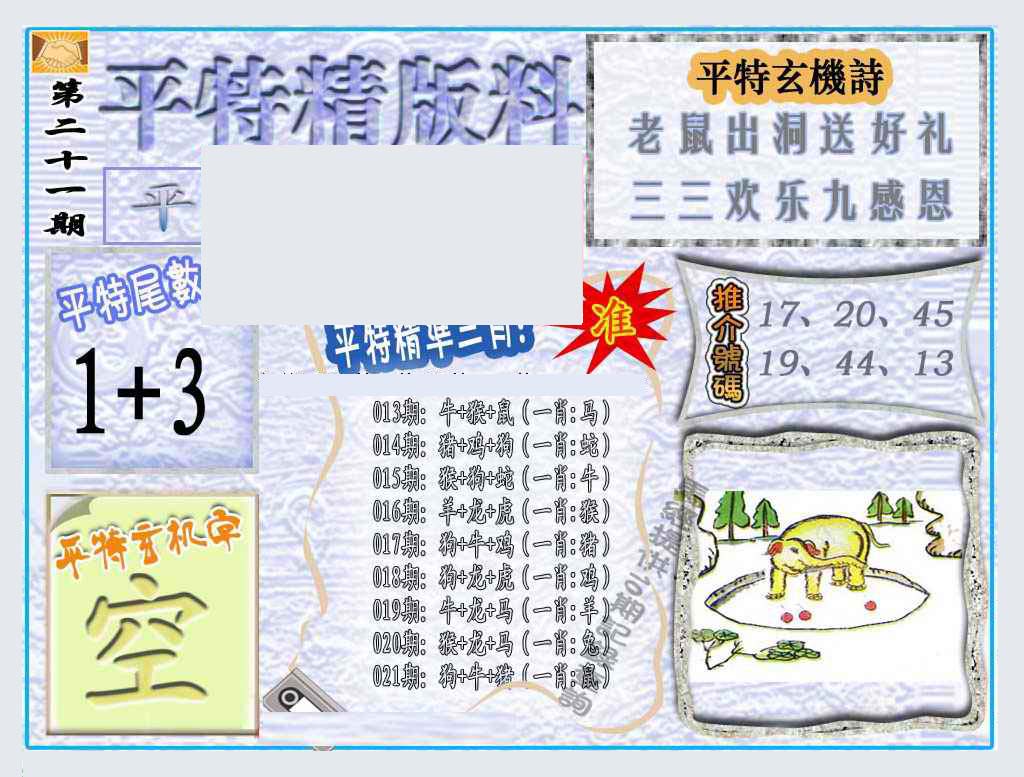 第二十一期
平特精版料
平
平特玄機詩
老鼠出洞送好礼
三三欢乐九感恩
平特尾數
1+3
平特精準三肖!
准
推介號碼
17、20、45
19、44、13
013期: 牛+猴+鼠 (一肖:马)
014期: 猪+鸡+狗 (一肖:蛇)
015期: 猴+狗+蛇 (一肖:牛)
016期: 羊+龙+虎 (一肖:猴)
017期: 狗+牛+鸡 (一肖:猪)
018期: 狗+龙+虎 (一肖:鸡)
019期: 牛+龙+马 (一肖:羊)
020期: 猴+龙+马 (一肖:兔)
021期: 狗+牛+猪 (一肖:鼠)
平特玄机字
空